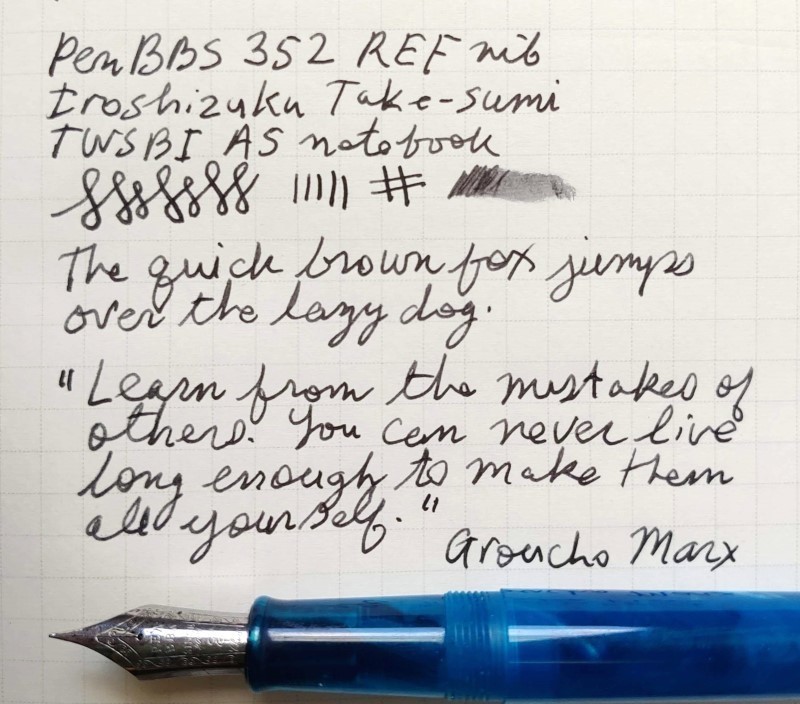 PenBBS 352 REF nib
Iroshizuku Take-sumi
TWSBI A5 notebook
#
The quick brown fox jumps
over the lazy dog.
"Learn from the mistakes of
others. You can never live
long enough to make them
all yourself."
Groucho Marx